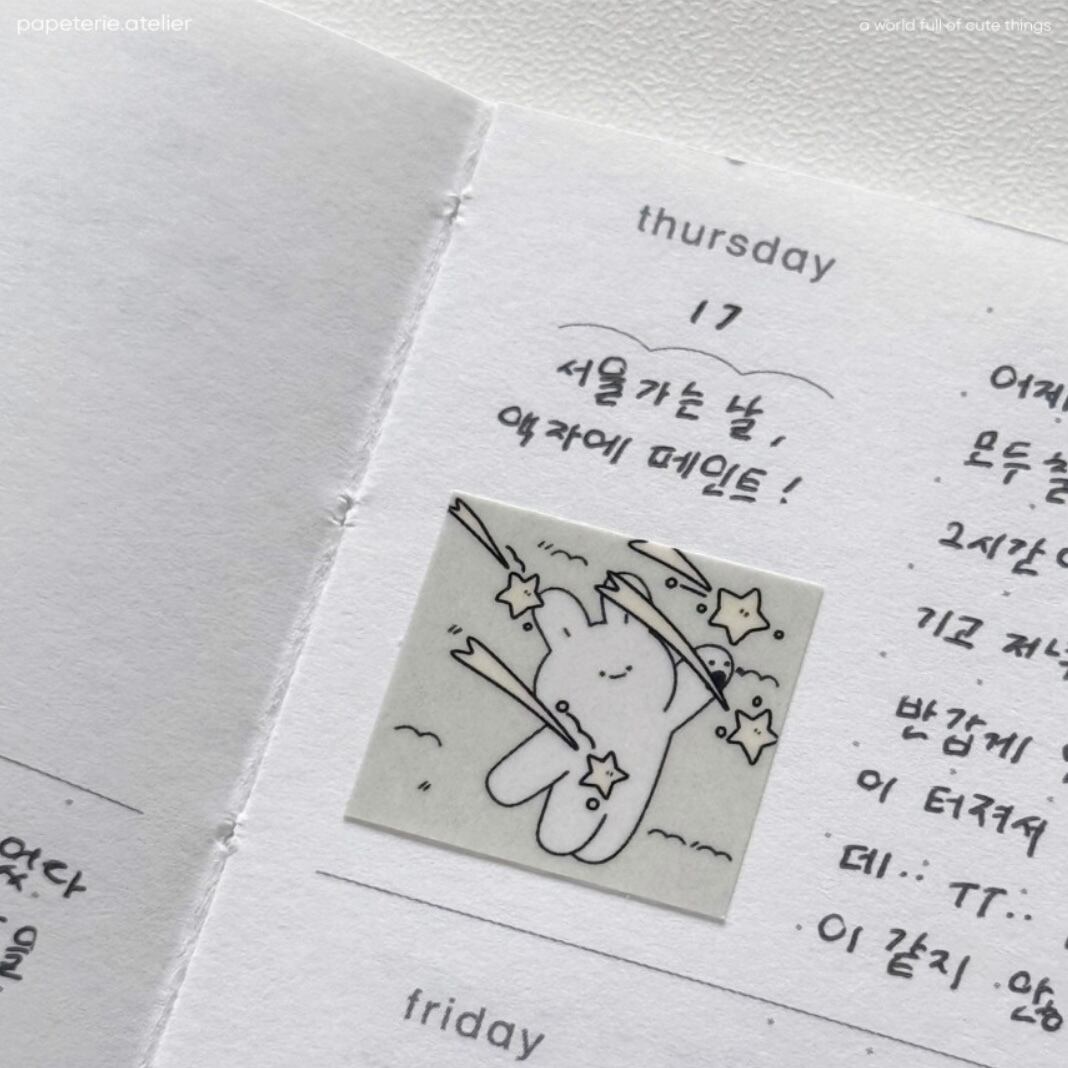 papeterie.atelier
a world full of cute things
thursday
17
서울 가는 날,
액자에 페인트!
어제
모두
2시간
기고 저녁
반갑게
이 터져서
데.. TT..
이 같지 않
었다
friday